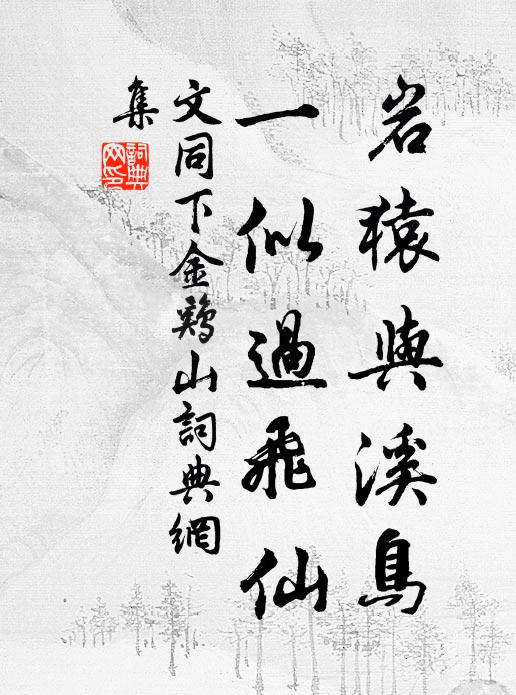 岩猿與溪鳥
一似過飛仙
文同下金鷄山詞典網
集
詞典
网印